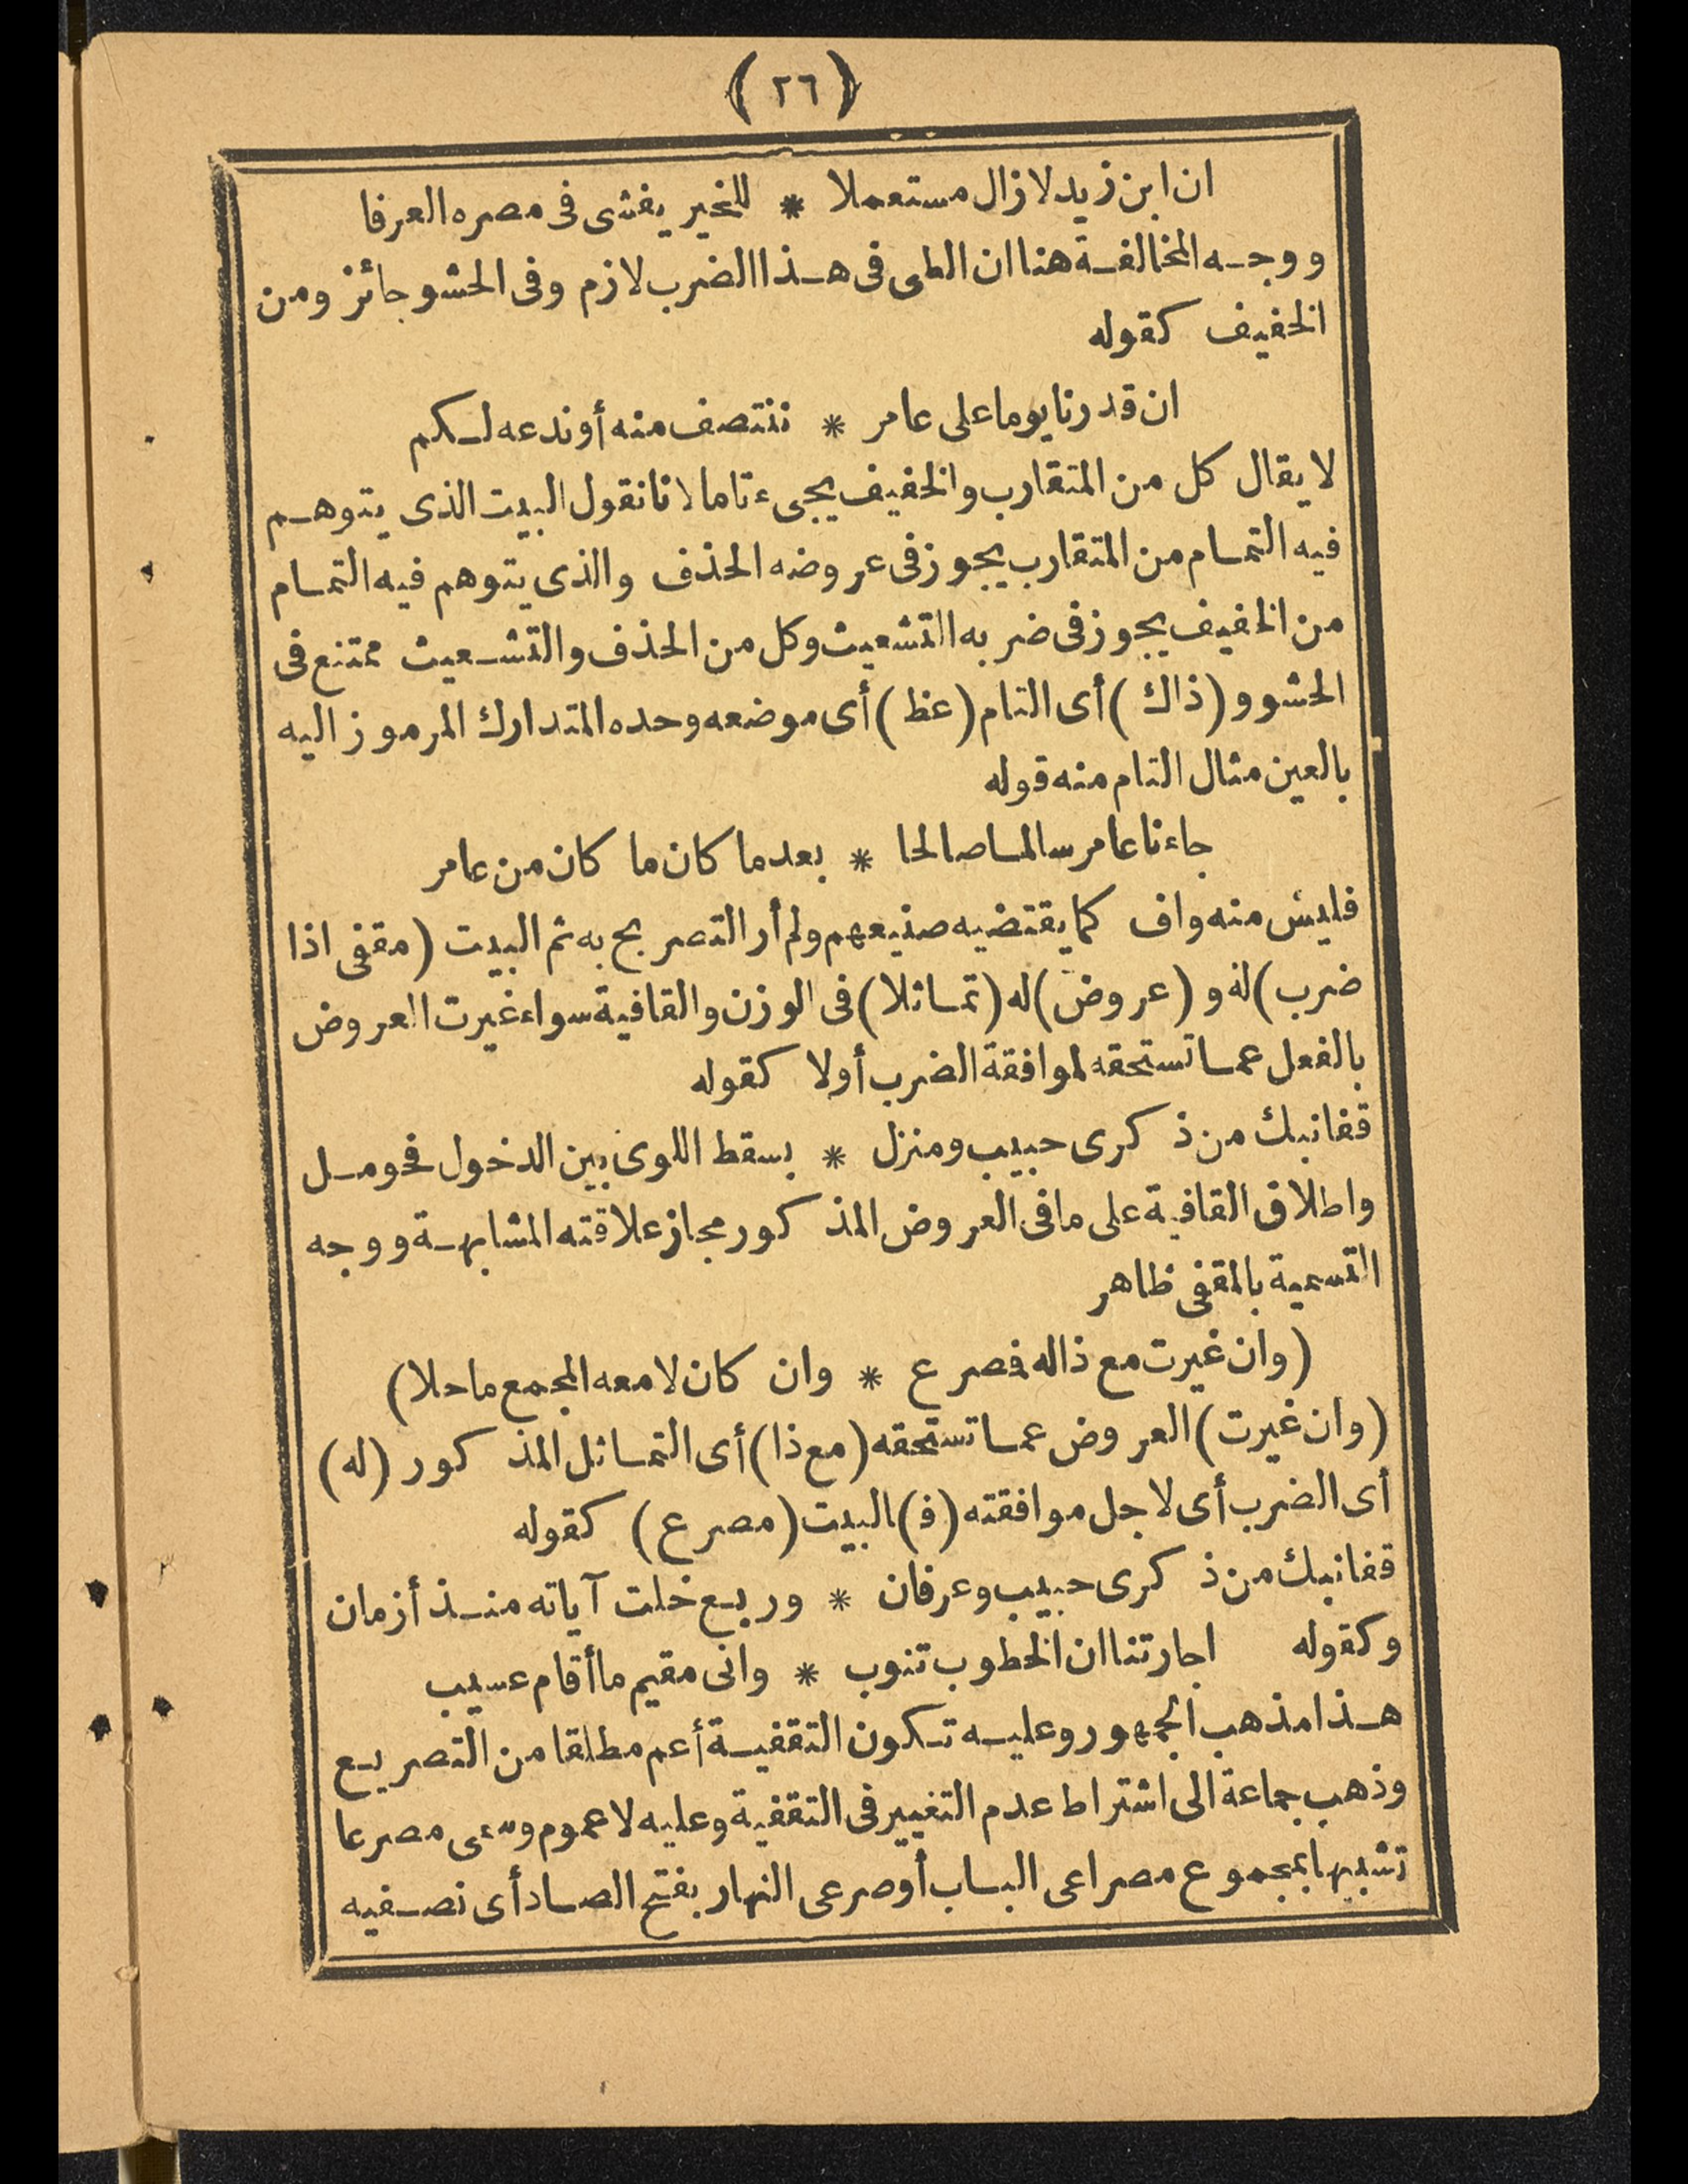 (٢٦)
ان ابن زيد لا زال مستعملا * للخير يفشى فى مصره العرفا
ووجه المخالفة هنا ان الطى فى هذا الضرب لازم وفى الحشو جائز ومن
الخفيف كقوله
ان قدرنا يوما على عامر * ننتصف منه أو ندعه لكم
لا يقال كل من المتقارب والخفيف يجىء تاما لانا نقول البيت الذى يتوهم
فيه التمام من المتقارب يجوز فى عروضه الحذف والذى يتوهم فيه التمام
من الخفيف يجوز فى ضربه التشعيث وكل من الحذف والتشعيث ممتنع فى
الحشو و (ذاك) أى التام (عظ) أى موضعه وحده المتدارك المرموز اليه
بالعين مثال التام منه قوله
جاءنا عامر سالما صالحا * بعد ما كان ما كان من عامر
فليس منه واف كما يقتضيه صنيعهم ولم أر التصريح به ثم البيت (مقفى اذا
ضرب) له و (عروض) له (تماثلا) فى الوزن والقافية سواء غيرت العروض
بالفعل عما تستحقه لموافقة الضرب أولا كقوله
قفانبك من ذكرى حبيب ومنزل * بسقط اللوى بين الدخول فحومل
واطلاق القافية على ما فى العروض المذكور مجاز علاقته المشابهة ووجه
التسمية بالمقفى ظاهر
(وان غيرت مع ذاله فصرع * وان كان لا معه المجمع ما حلا)
(وان غيرت) العروض عما تستحقه (مع ذا) أى التماثل المذكور (له)
أى الضرب أى لاجل موافقته (ف) البيت (مصرع) كقوله
قفانبك من ذكرى حبيب وعرفان * وربع خلت آياته منذ أزمان
وكقوله اجارتنا ان الخطوب تنوب * وانى مقيم ما أقام عسيب
هذا مذهب الجمهور وعليه تكون التقفية أعم مطلقا من التصريع
وذهب جماعة الى اشتراط عدم التغيير فى التقفية وعليه لا عموم وسمى مصرعا
تشبيها بمجموع مصراعى الباب أو صرعى النهار بفتح الصاد أى نصفيه